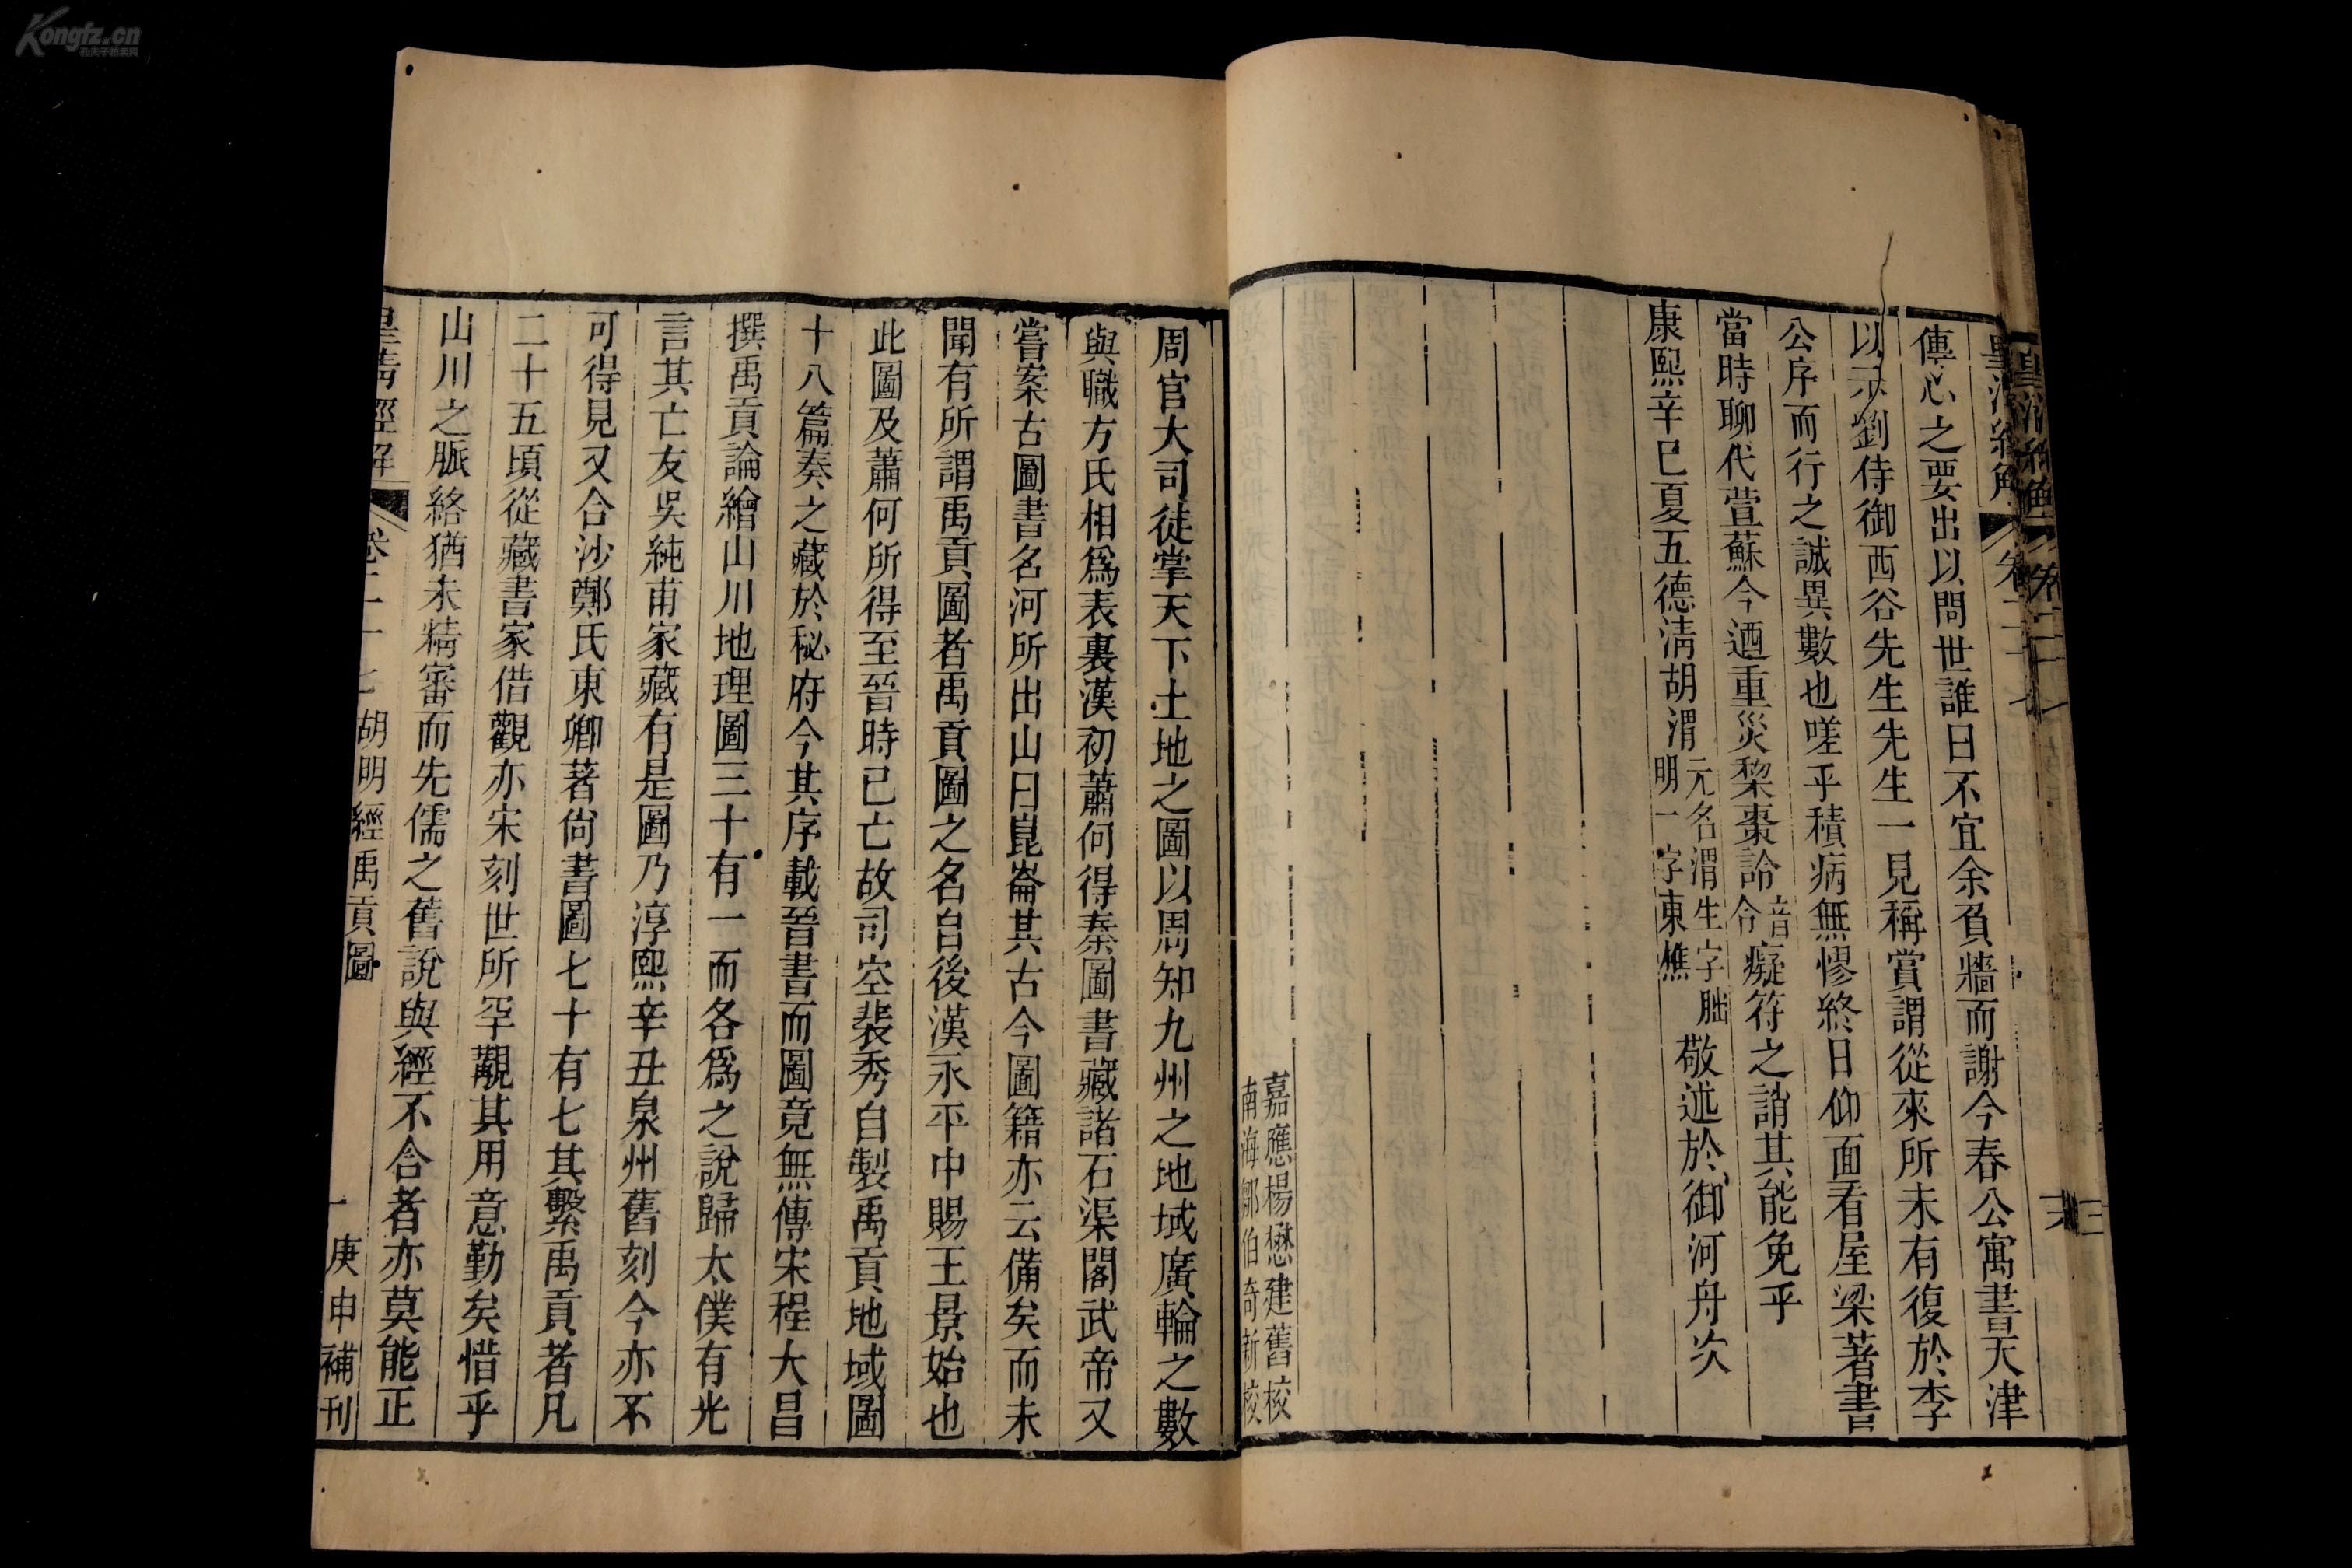 傳心之要出以問世誰曰不宜余負牆而謝今春公寓書天津
以示劉侍御西谷先生先生一見稱賞謂從來所未有復於李
公序而行之誠異數也嗟乎積病無憀終日仰面看屋梁著書
當時聊代萱蘇今迺重災棃棗詅音令癡符之誚其能免乎
康熙辛巳夏五德清胡渭元名渭生字朏明一字東樵敬述於御河舟次
嘉應楊懋建舊校
南海鄒伯奇新校
周官大司徒掌天下土地之圖以周知九州之地域廣輪之數
與職方氏相爲表裏漢初蕭何得秦圖書藏諸石渠閣武帝又
嘗案古圖書名河所出山曰崑崙其古今圖籍亦云備矣而未
聞有所謂禹貢圖者禹貢圖之名自後漢永平中賜王景始也
此圖及蕭何所得至晉時已亡故司空裴秀自製禹貢地域圖
十八篇奏之藏於秘府今其序載晉書而圖竟無傳宋程大昌
撰禹貢論繪山川地理圖三十有一而各爲之說歸太僕有光
言其亡友吳純甫家藏有是圖乃淳熙辛丑泉州舊刻今亦不
可得見又合沙鄭氏東卿著尚書圖七十有七其繫禹貢者凡
二十五頃從藏書家借觀亦宋刻世所罕覯其用意勤矣惜乎
山川之脈絡猶未精審而先儒之舊說與經不合者亦莫能正
皇清經解 卷二十七 胡明經禹貢圖 一 庚申補刊
Kongfz.cn